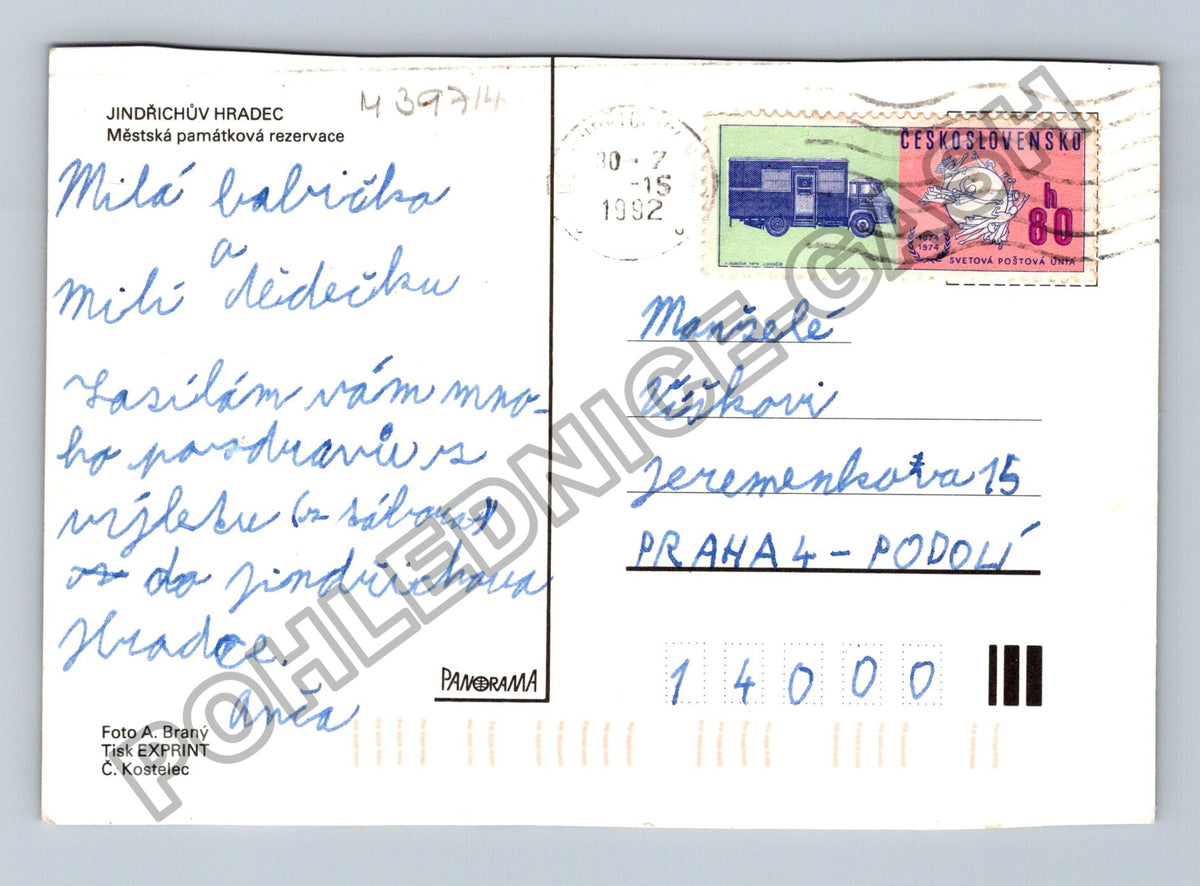 JINDŘICHŮV HRADEC
Městská památková rezervace
M 397/4
Milá babičko
a
Milí dědečku
Zasílám vám mno-
ho pozdravů z
výletu (z tábora)
do Jindřichova
Hradce.
Anča
Foto A. Braný
Tisk EXPRINT
Č. Kostelec
PANORAMA
30 -7
-15
1992
ČESKOSLOVENSKO
h
80
1874
1974
SVETOVÁ POŠTOVÁ ÚNIA
Manželé
Žižkovi
Jeremenkova 15
PRAHA 4 - PODOLÍ
14000
POHLEDNICE-GASH